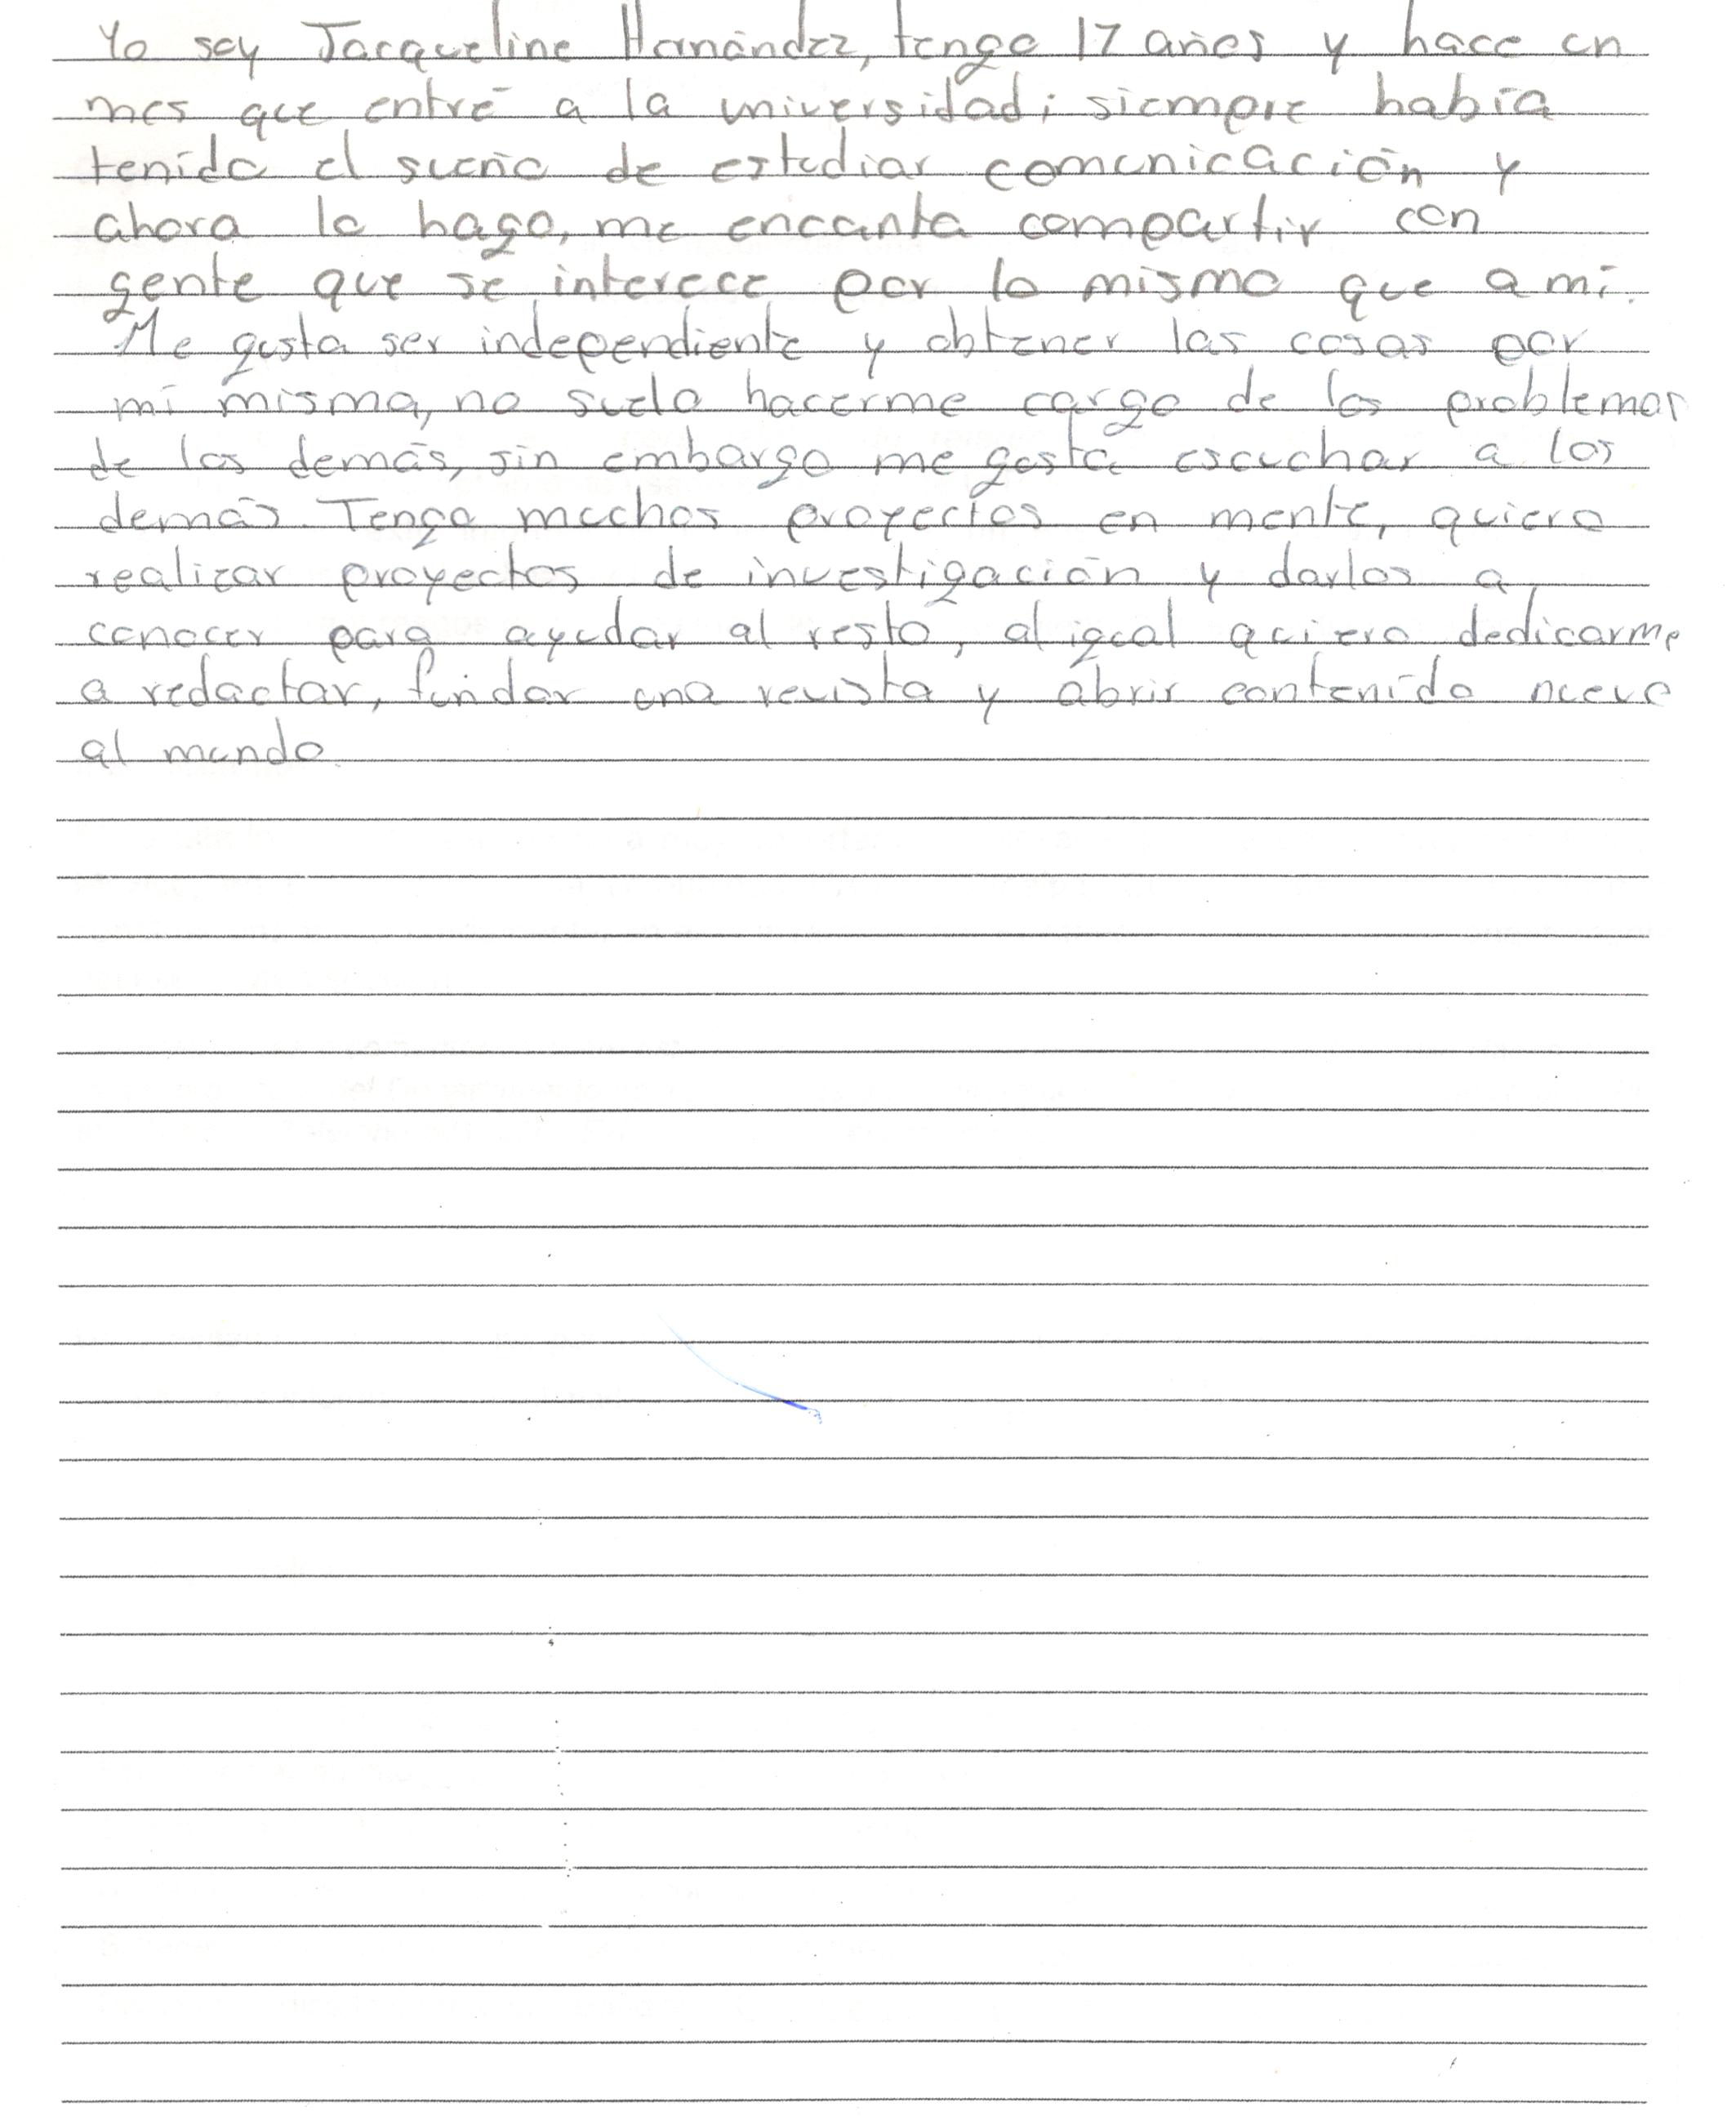 Yo soy Jacqueline Hernández, tengo 17 años y hace un
mes que entré a la universidad; siempre había
tenido el sueño de estudiar comunicación y
ahora lo hago, me encanta compartir con
gente que se interece por lo mismo que a mí.
Me gusta ser independiente y obtener las cosas por
mí misma, no suelo hacerme cargo de los problemas
de los demás, sin embargo me gusta escuchar a los
demás. Tengo muchos proyectos en mente, quiero
realizar proyectos de investigación y darlos a
conocer para ayudar al resto, al igual quiero dedicarme
a redactar, fundar una revista y abrir contenido nuevo
al mundo.